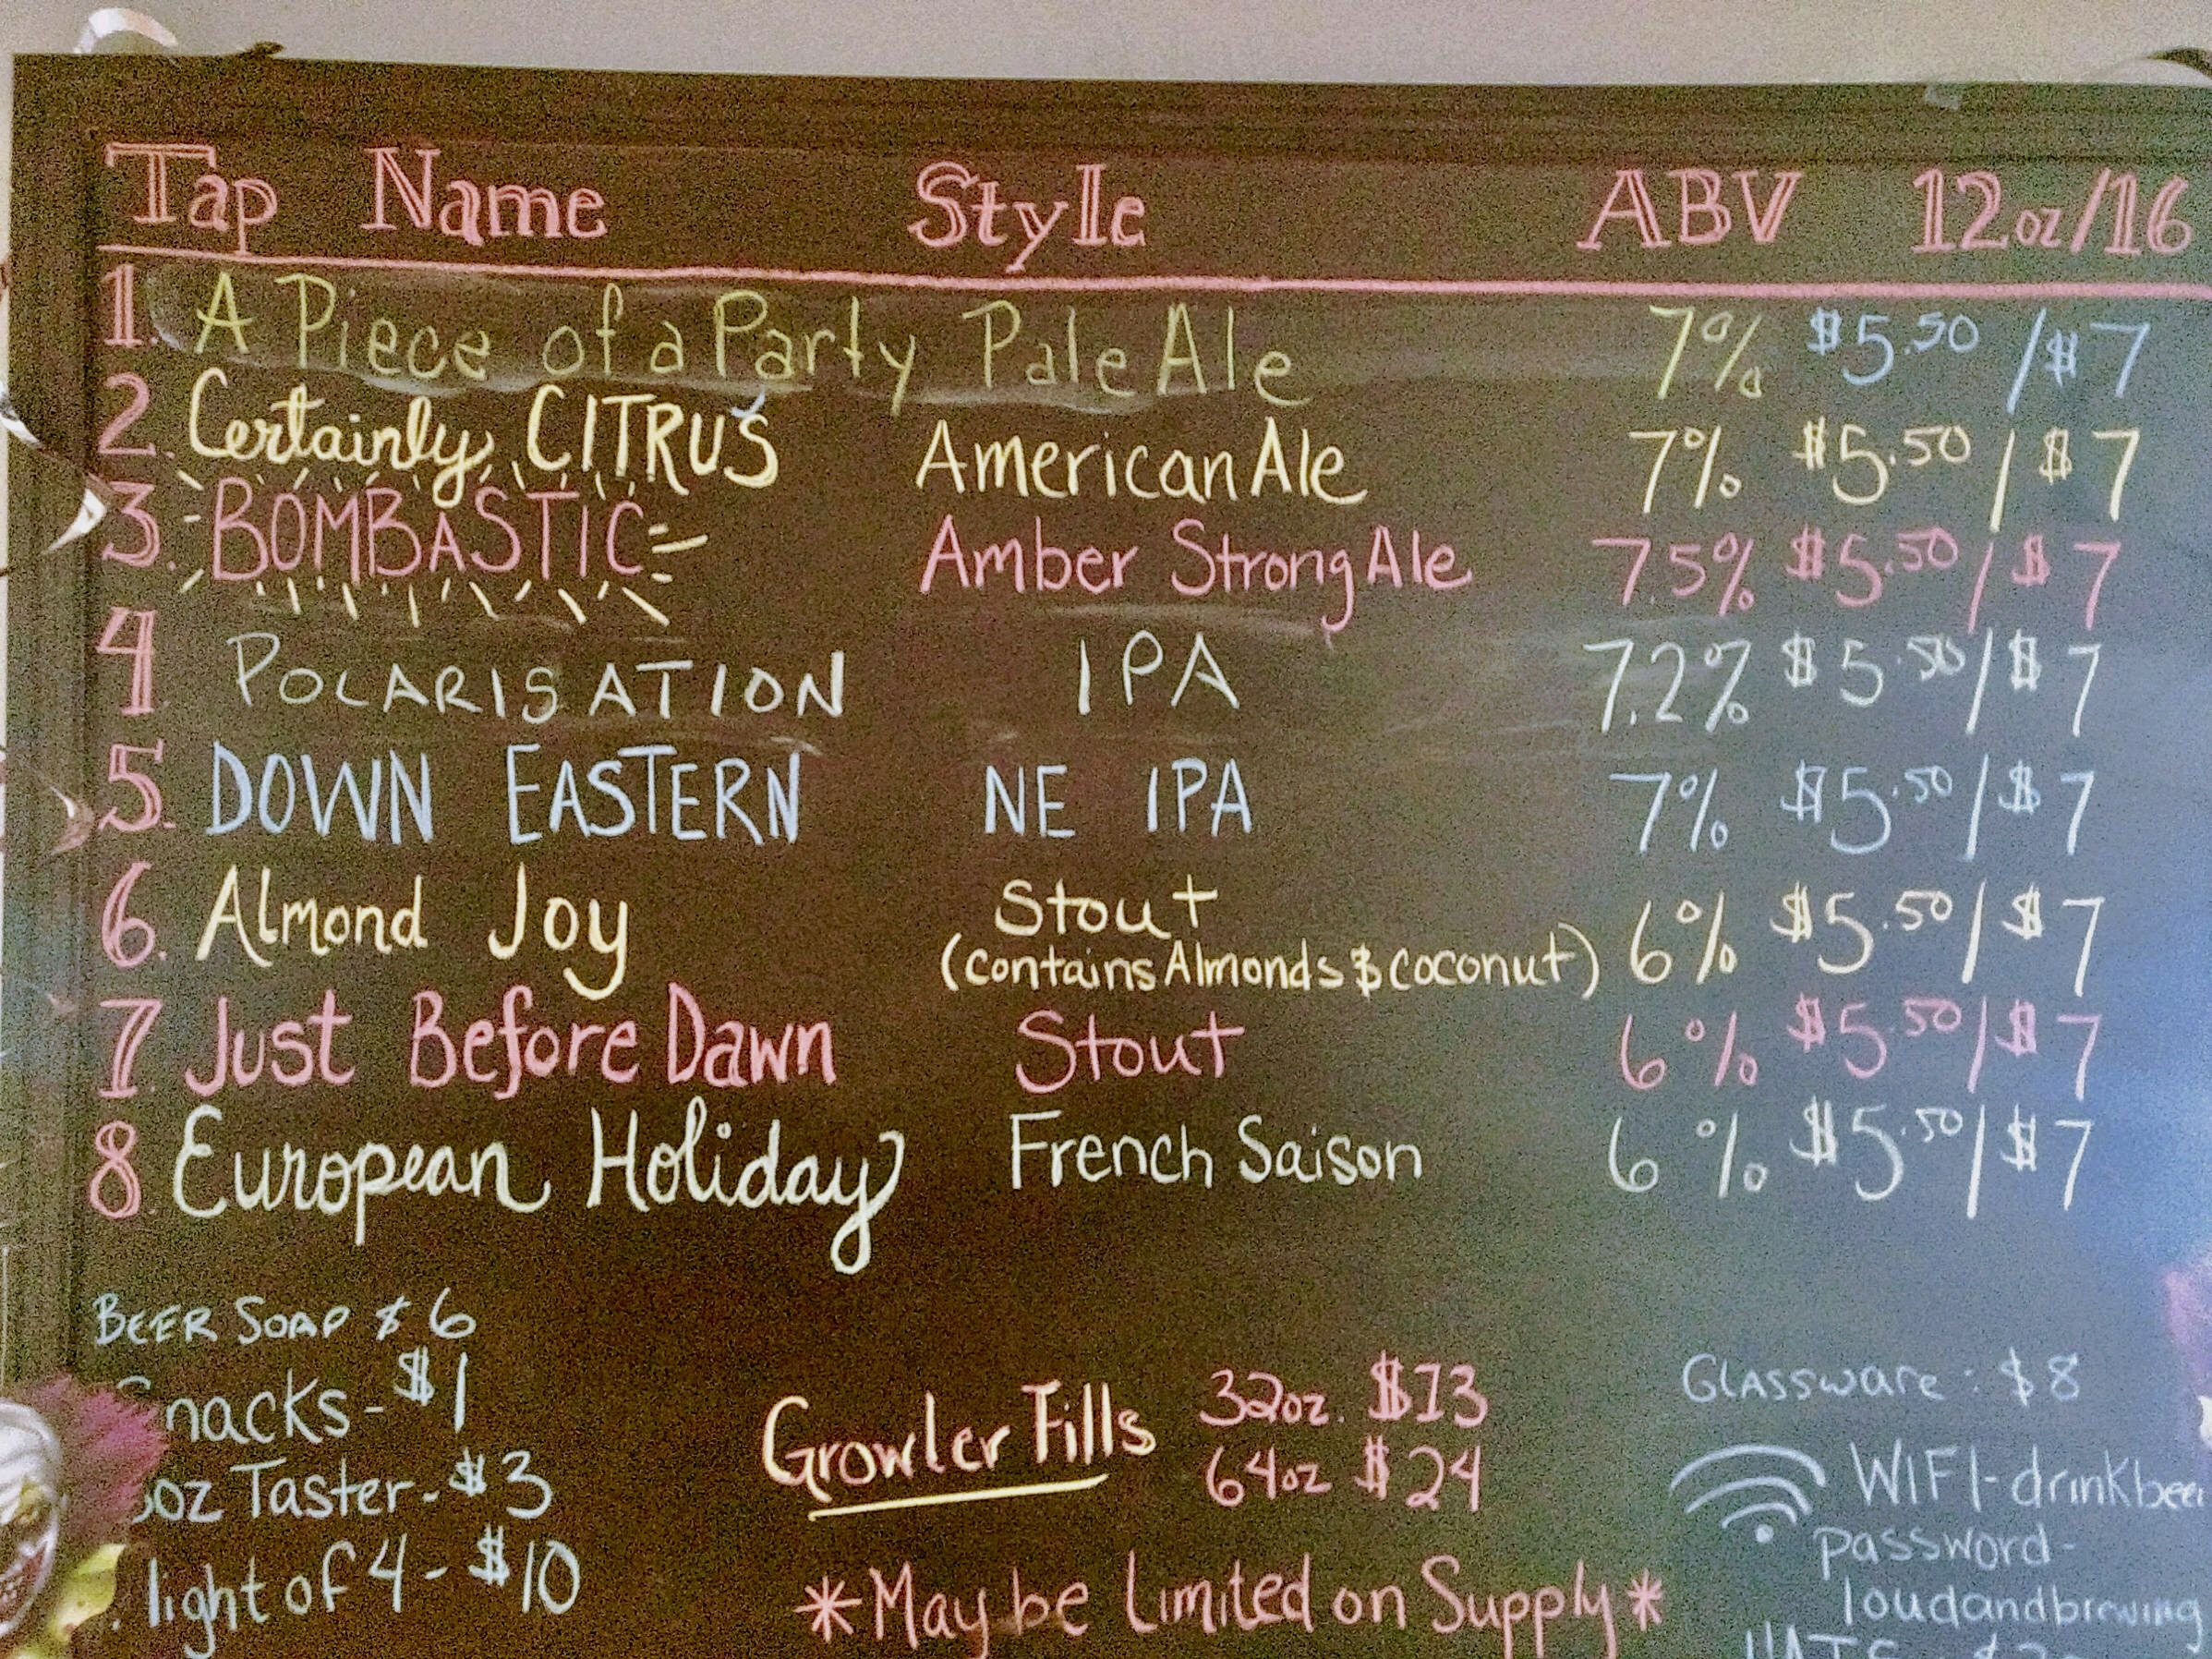 Tap Name Style ABV 12oz/16
1. A Piece of a Party Pale Ale 7% $5.50 / $7
2. Certainly CITRUS American Ale 7% $5.50 / $7
3. BOMBASTIC Amber Strong Ale 7.5% $5.50 / $7
4 POLARISATION IPA 7.2% $5.50 / $7
5. DOWN EASTERN NE IPA 7% $5.50 / $7
6. Almond Joy Stout 6% $5.50 / $7
(contains Almonds & coconut)
7. Just Before Dawn Stout 6% $5.50 / $7
8. European Holiday French Saison 6% $5.50 / $7
BEER SOAP $6
nacks - $1
oz Taster - $3
light of 4 - $10
Growler Fills 32oz. $13
64oz $24
*May be Limited on Supply*
GLASSWare: $8
WIFI - drinkbee
password -
loudandbrewing